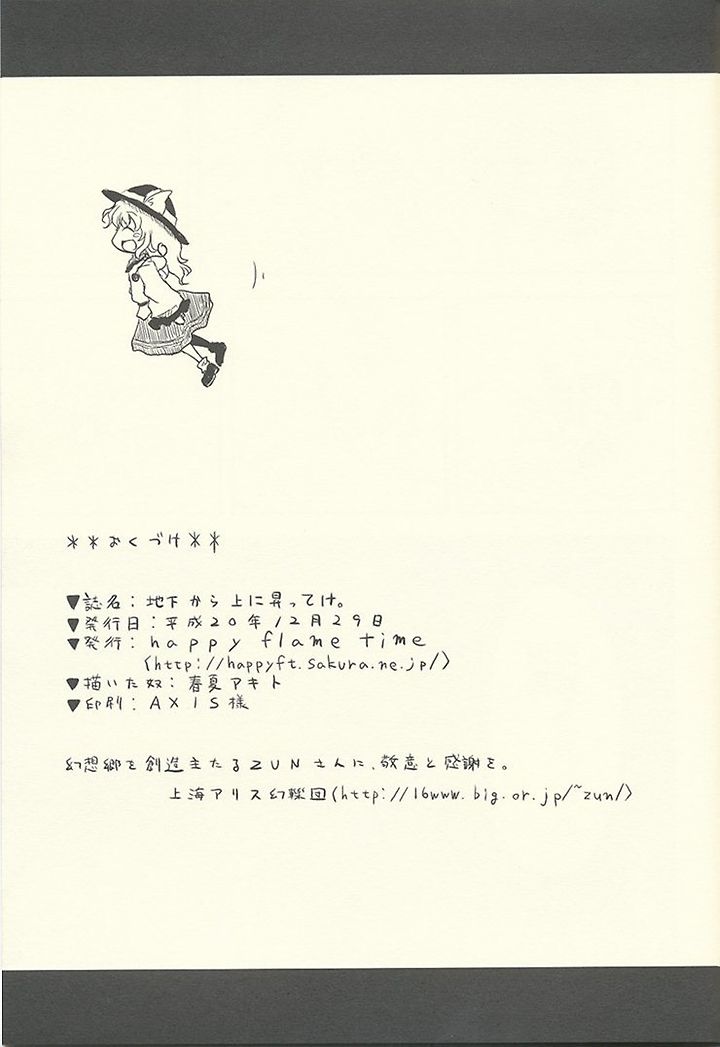 ＊＊おくづけ＊＊
▼誌名：地下から上に昇ってけ。
▼発行日：平成２０年１２月２９日
▼発行：happy flame time
〈http://happyft.sakura.ne.jp/〉
▼描いた奴：春夏アキト
▼印刷：ＡＸＩＳ様
幻想郷を創造主たるＺＵＮさんに、敬意と感謝を。
上海アリス幻樂団〈http://16www.big.or.jp/~zun/〉